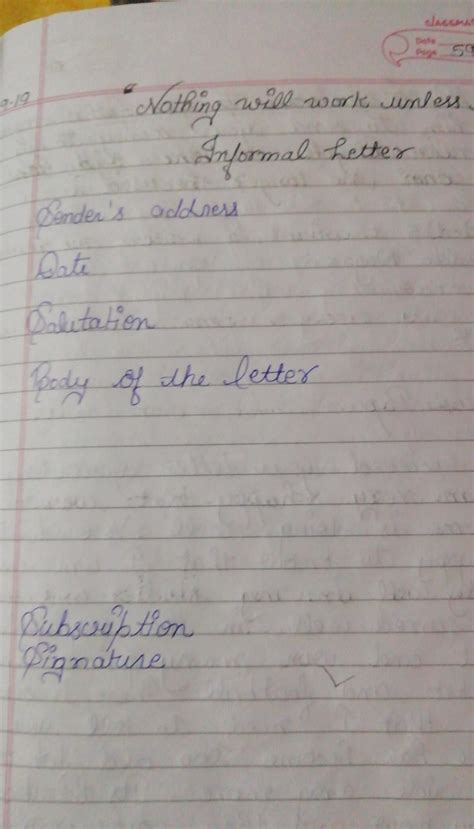 classmate
Date
Page 59
9-19
"Nothing will work unless
Informal Letter
Sender's address
Date
Salutation
Body of the letter
Subscription
Signature